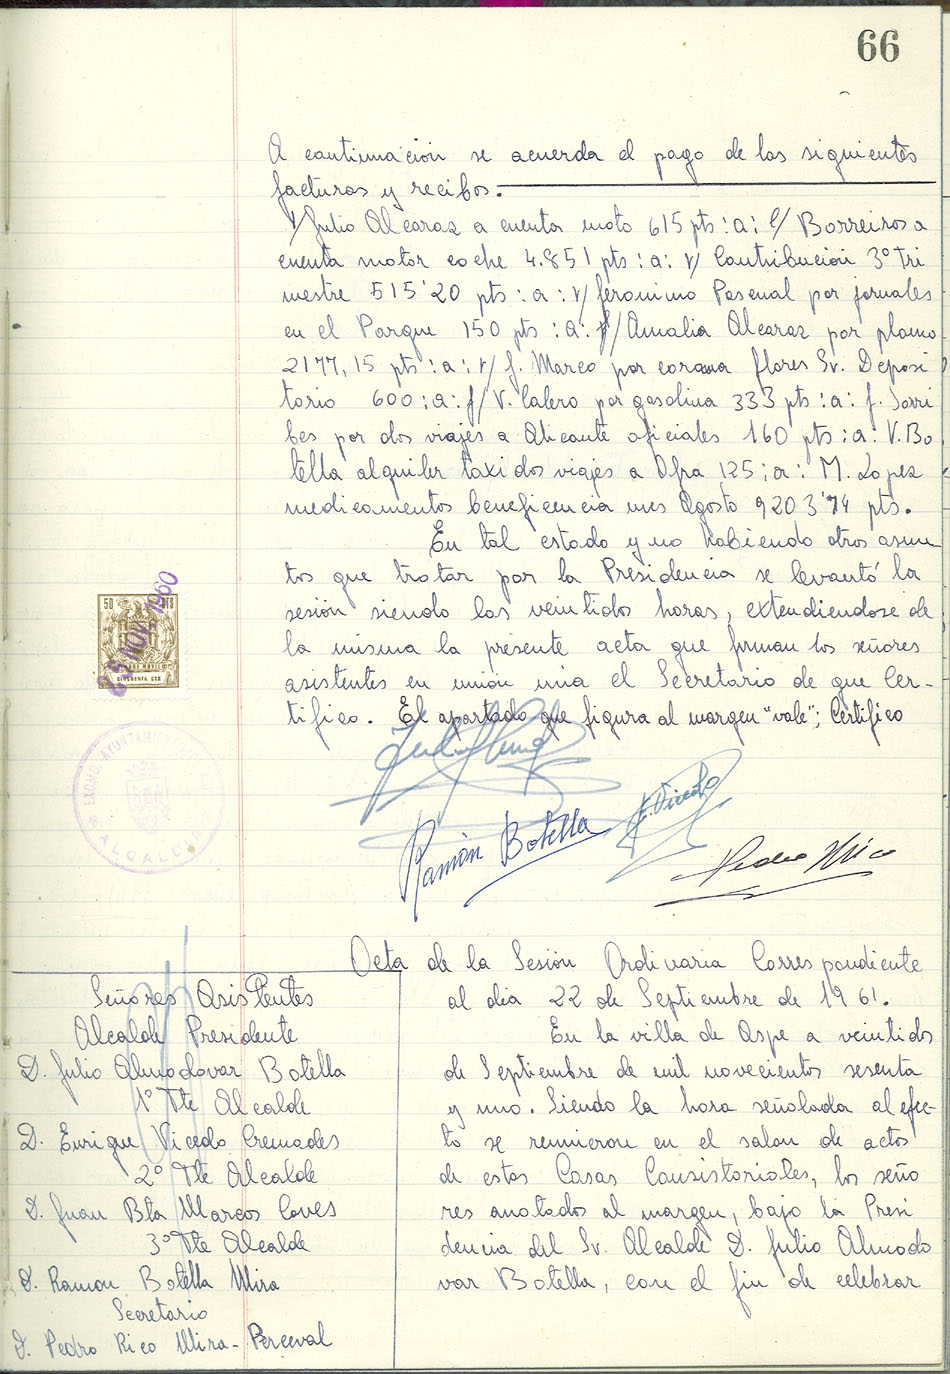 66
A continuación se acuerda el pago de las siguientes
facturas y recibos.
r/ Julio Alcaraz a cuenta moto 615 pts :a: f/ Borreiros a
cuenta motor coche 4.851 pts :a: r/ Contribución 3º Tri
mestre 515'20 pts :a: r/ Jeronimo Pascual por jornales
en el Parque 150 pts :a: f/ Amalia Alcaraz por plano
2177,15 pts :a: r/ J. Marco por corona flores Sr. Deposi
tario 600 :a: f/ V. Calero por gasolina 333 pts :a: J. Sorri
bes por dos viajes a Alicante oficiales 160 pts :a: V. Bo
tella alquiler taxi dos viajes a Ofra 125 :a: M. Lopez
medicamentos beneficencia mes Agosto 9203'74 pts.
En tal estado y no habiendo otros asun-
tos que tratar por la Presidencia se levantó la
sesión siendo las veintidos horas, extendiendose de
la misma la presente acta que firman los señores
asistentes en union mia el Secretario de que Cer-
tifico. El apartado que figura al margen "vale"; Certifico
50 CTS
25 NOV 1960
CINCUENTA CTS
EXCMO. AYUNTAMIENTO
ALCALDIA
Ramón Botella
E. Vicedo
Pedro Rico
Acta de la Sesión Ordinaria Correspondiente
al dia 22 de Septiembre de 1961.
En la villa de Aspe a veintidos
de Septiembre de mil novecientos sesenta
y uno. Siendo la hora señalada al efec-
to se reunieron en el salon de actos
de estas Casas Consistoriales, los seño
res anotados al margen, bajo la Presi
dencia del Sr. Alcalde D. Julio Almodo
var Botella, con el fin de celebrar
Señores Asistentes
Alcalde Presidente
D. Julio Almodovar Botella
1º Tte Alcalde
D. Enrique Vicedo Cremades
2º Tte Alcalde
D. Juan Bta Marcos Caves
3º Tte Alcalde
D. Ramon Botella Mira
Secretario
D. Pedro Rico Mira-Perceval